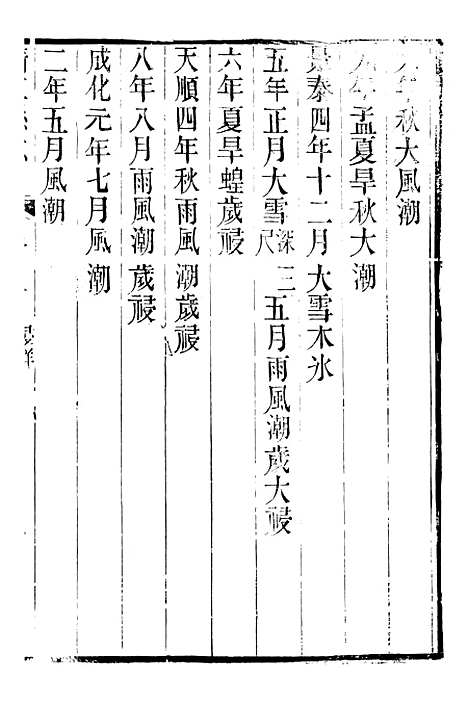 年秋大風潮
九年孟夏旱秋大潮
景泰四年十二月大雪木氷
五年正月大雪深二尺五月雨風潮歲大祲
六年夏旱蝗歲祲
天順四年秋雨風潮歲祲
八年八月雨風潮歲祲
成化元年七月風潮
二年五月風潮